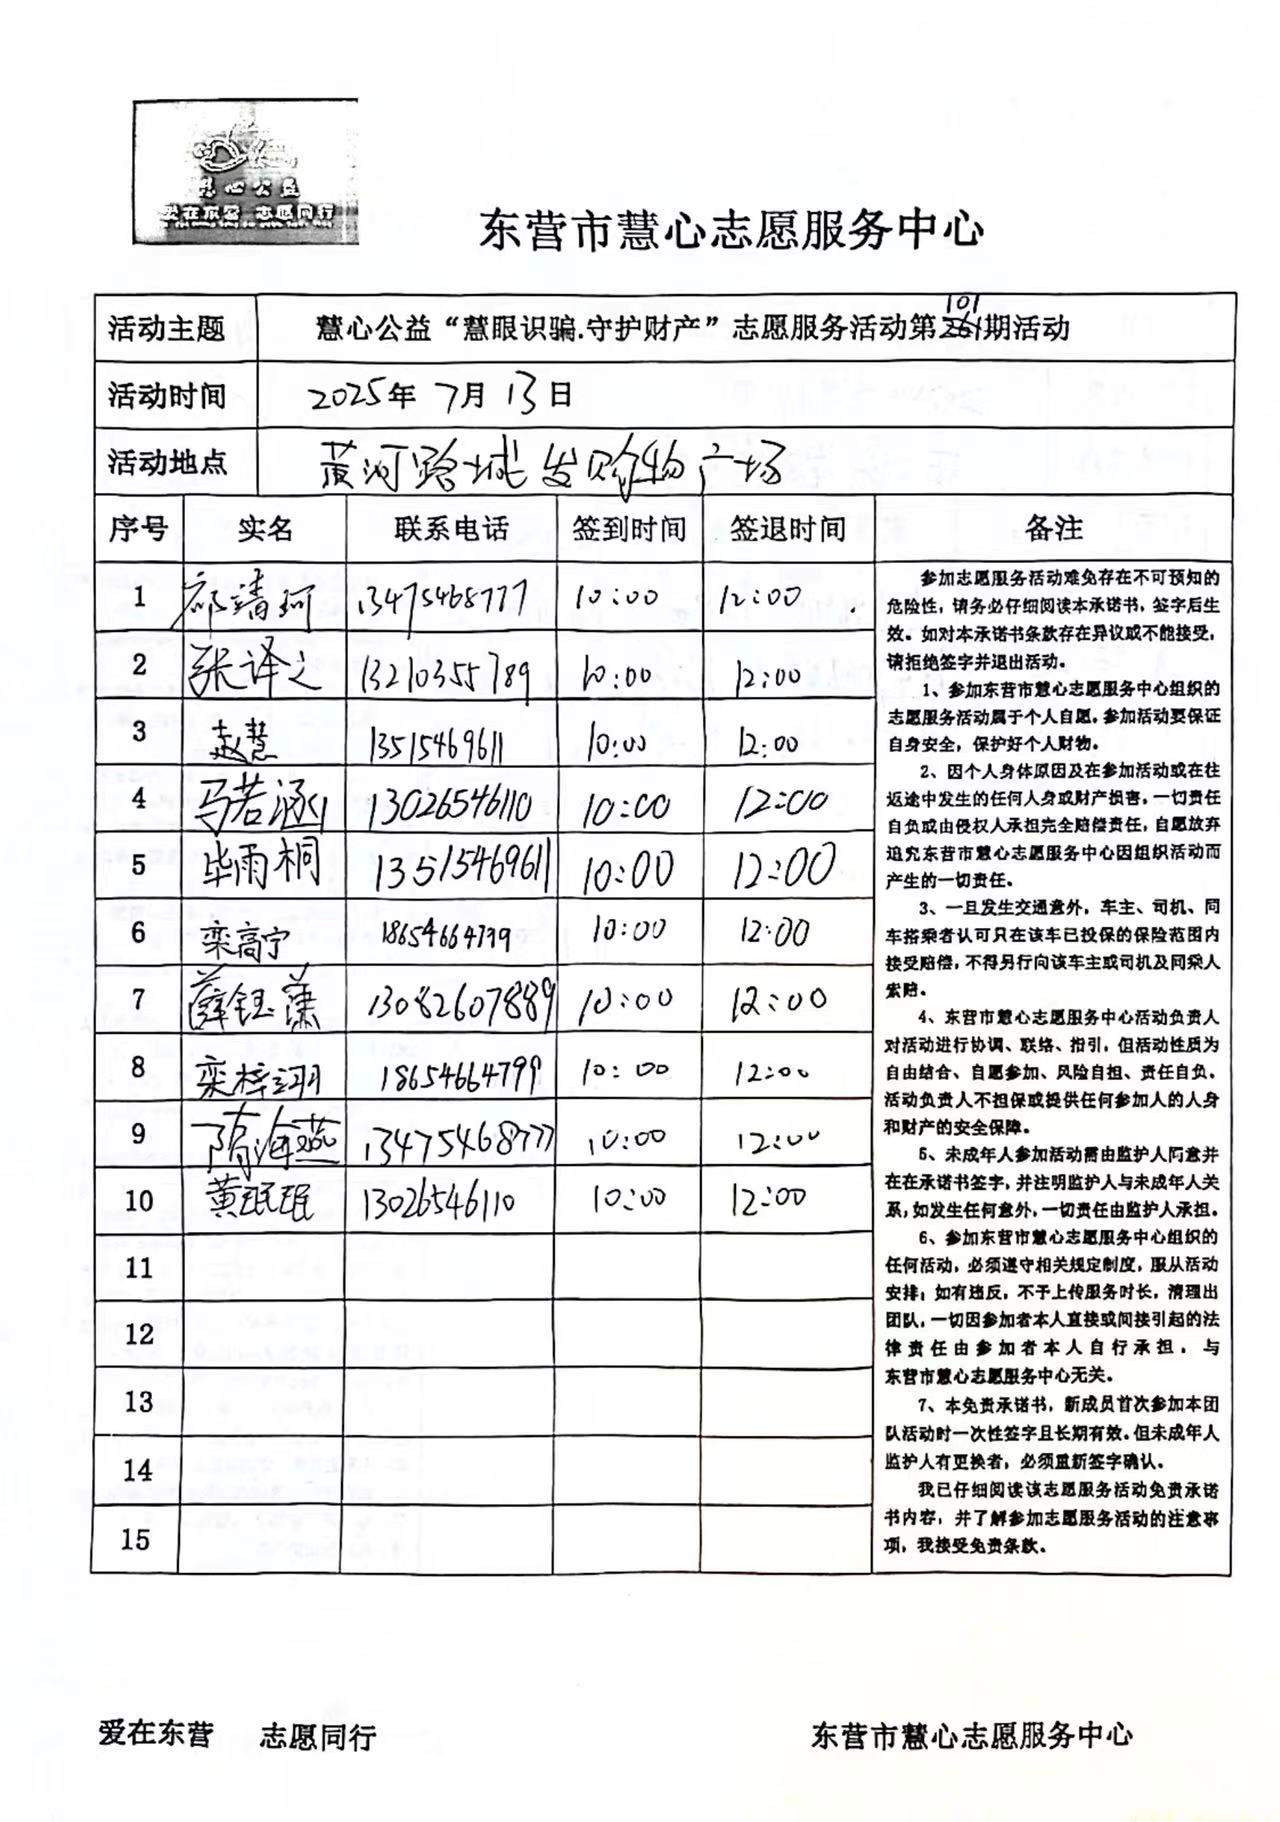 慧心公益
爱在东营 志愿同行
东营市慧心志愿服务中心
活动主题 慧心公益“慧眼识骗.守护财产”志愿服务活动第101期活动
活动时间 2025年 7月 13日
活动地点 黄河路城发购物广场
序号 实名 联系电话 签到时间 签退时间 备注
1 清珂 13475468777 10:00 12:00
2 张译之 13210355789 10:00 12:00
3 赵慧 13515469611 10:00 12:00
4 马若涵 13026546110 10:00 12:00
5 毕雨桐 13515469611 10:00 12:00
6 栾高宁 18654664799 10:00 12:00
7 薛钰潇 13082607889 10:00 12:00
8 栾梓翊 18654664799 10:00 12:00
9 隋海燕 13475468777 10:00 12:00
10 黄珉珉 13026546110 10:00 12:00
11
12
13
14
15
参加志愿服务活动难免存在不可预知的
危险性，请务必仔细阅读本承诺书，签字后生
效。如对本承诺书条款存在异议或不能接受，
请拒绝签字并退出活动。
1、参加东营市慧心志愿服务中心组织的
志愿服务活动属于个人自愿，参加活动要保证
自身安全，保护好个人财物。
2、因个人身体原因及在参加活动或在往
返途中发生的任何人身或财产损害，一切责任
自负或由侵权人承担完全赔偿责任，自愿放弃
追究东营市慧心志愿服务中心因组织活动而
产生的一切责任。
3、一旦发生交通意外，车主、司机、同
车搭乘者认可只在该车已投保的保险范围内
接受赔偿，不得另行向该车主或司机及同乘人
索赔。
4、东营市慧心志愿服务中心活动负责人
对活动进行协调、联络、指引，但活动性质为
自由结合、自愿参加、风险自担、责任自负，
活动负责人不担保或提供任何参加人的人身
和财产的安全保障。
5、未成年人参加活动需由监护人同意并
在在承诺书签字，并注明监护人与未成年人关
系，如发生任何意外，一切责任由监护人承担。
6、参加东营市慧心志愿服务中心组织的
任何活动，必须遵守相关规定制度，服从活动
安排；如有违反，不予上传服务时长，清理出
团队，一切因参加者本人直接或间接引起的法
律责任由参加者本人自行承担，与
东营市慧心志愿服务中心无关。
7、本免责承诺书，新成员首次参加本团
队活动时一次性签字且长期有效。但未成年人
监护人有更换者，必须重新签字确认。
我已仔细阅读该志愿服务活动免责承诺
书内容，并了解参加志愿服务活动的注意事
项，我接受免责条款。
爱在东营 志愿同行 东营市慧心志愿服务中心